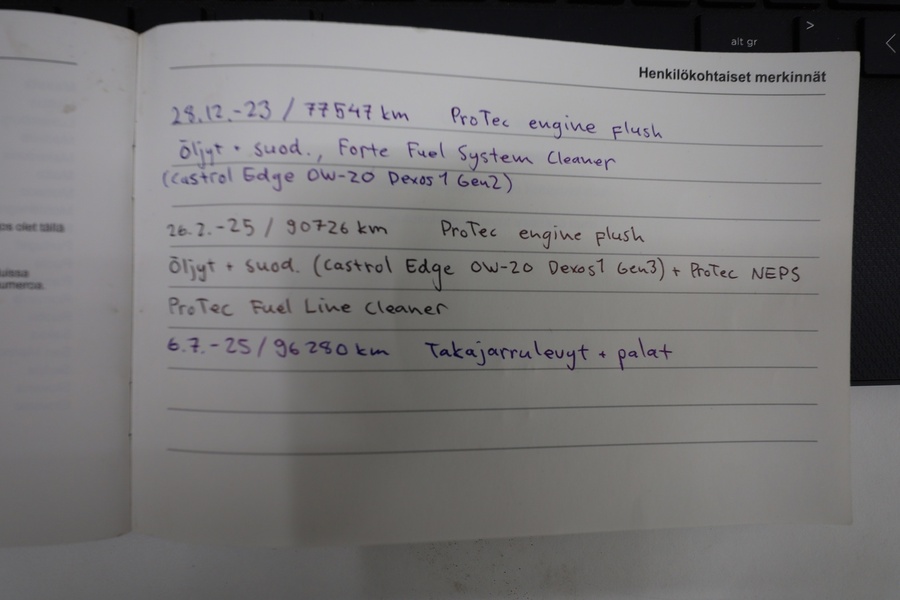 alt gr
>
<
Henkilökohtaiset merkinnät
28.12.-23 / 77547 km ProTec engine flush
Öljyt + suod., Forte Fuel System Cleaner
(Castrol Edge 0W-20 Dexos1 Gen2)
26.2.-25 / 90726 km ProTec engine flush
Öljyt + suod. (Castrol Edge 0W-20 Dexos1 Gen3) + ProTec NEPS
ProTec Fuel Line Cleaner
6.7.-25 / 96280 km Takajarrulevyt + palat
os olet tällä
uissa
umeroa.